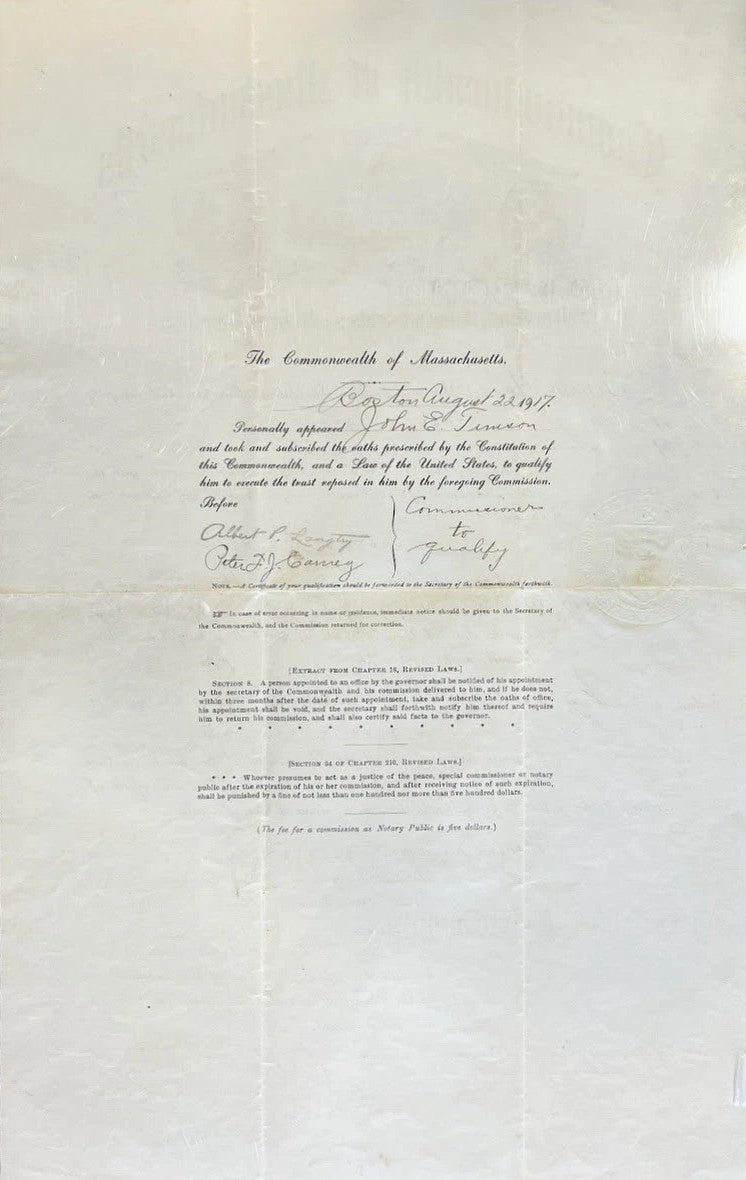 The Commonwealth of Massachusetts.
Boston August 22 1917.
Personally appeared John E. Timson
and took and subscribed the oaths prescribed by the Constitution of
this Commonwealth, and a Law of the United States, to qualify
him to execute the trust reposed in him by the foregoing Commission.
Before
Commissioners
Albert P. Langtry
to
Peter F. J. Carney
qualify
NOTE.—A Certificate of your qualification should be forwarded to the Secretary of the Commonwealth forthwith.
☞ In case of error occurring in name or residence, immediate notice should be given to the Secretary of
the Commonwealth, and the Commission returned for correction.
[EXTRACT FROM CHAPTER 18, REVISED LAWS.]
SECTION 8. A person appointed to an office by the governor shall be notified of his appointment
by the secretary of the Commonwealth and his commission delivered to him, and if he does not,
within three months after the date of such appointment, take and subscribe the oaths of office,
his appointment shall be void, and the secretary shall forthwith notify him thereof and require
him to return his commission, and shall also certify said facts to the governor.
* * * * * * * * * *
[SECTION 34 OF CHAPTER 210, REVISED LAWS.]
* * * Whoever presumes to act as a justice of the peace, special commissioner or notary
public after the expiration of his or her commission, and after receiving notice of such expiration,
shall be punished by a fine of not less than one hundred nor more than five hundred dollars.
(The fee for a commission as Notary Public is five dollars.)